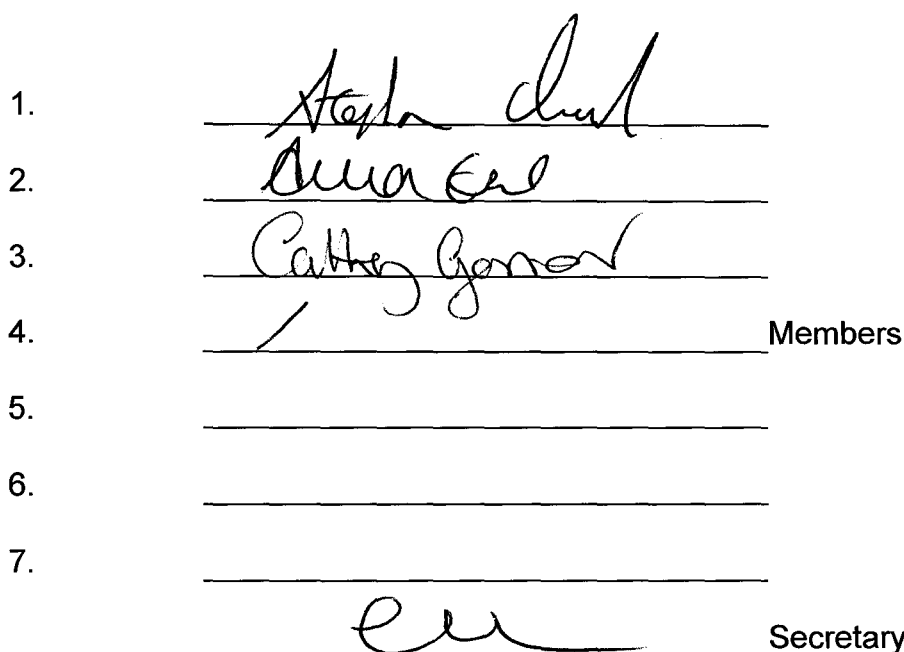 1. Stephen
2. Anna Earl
3. Cathey Gorman
4. / Members
5.
6.
7.
Secretary